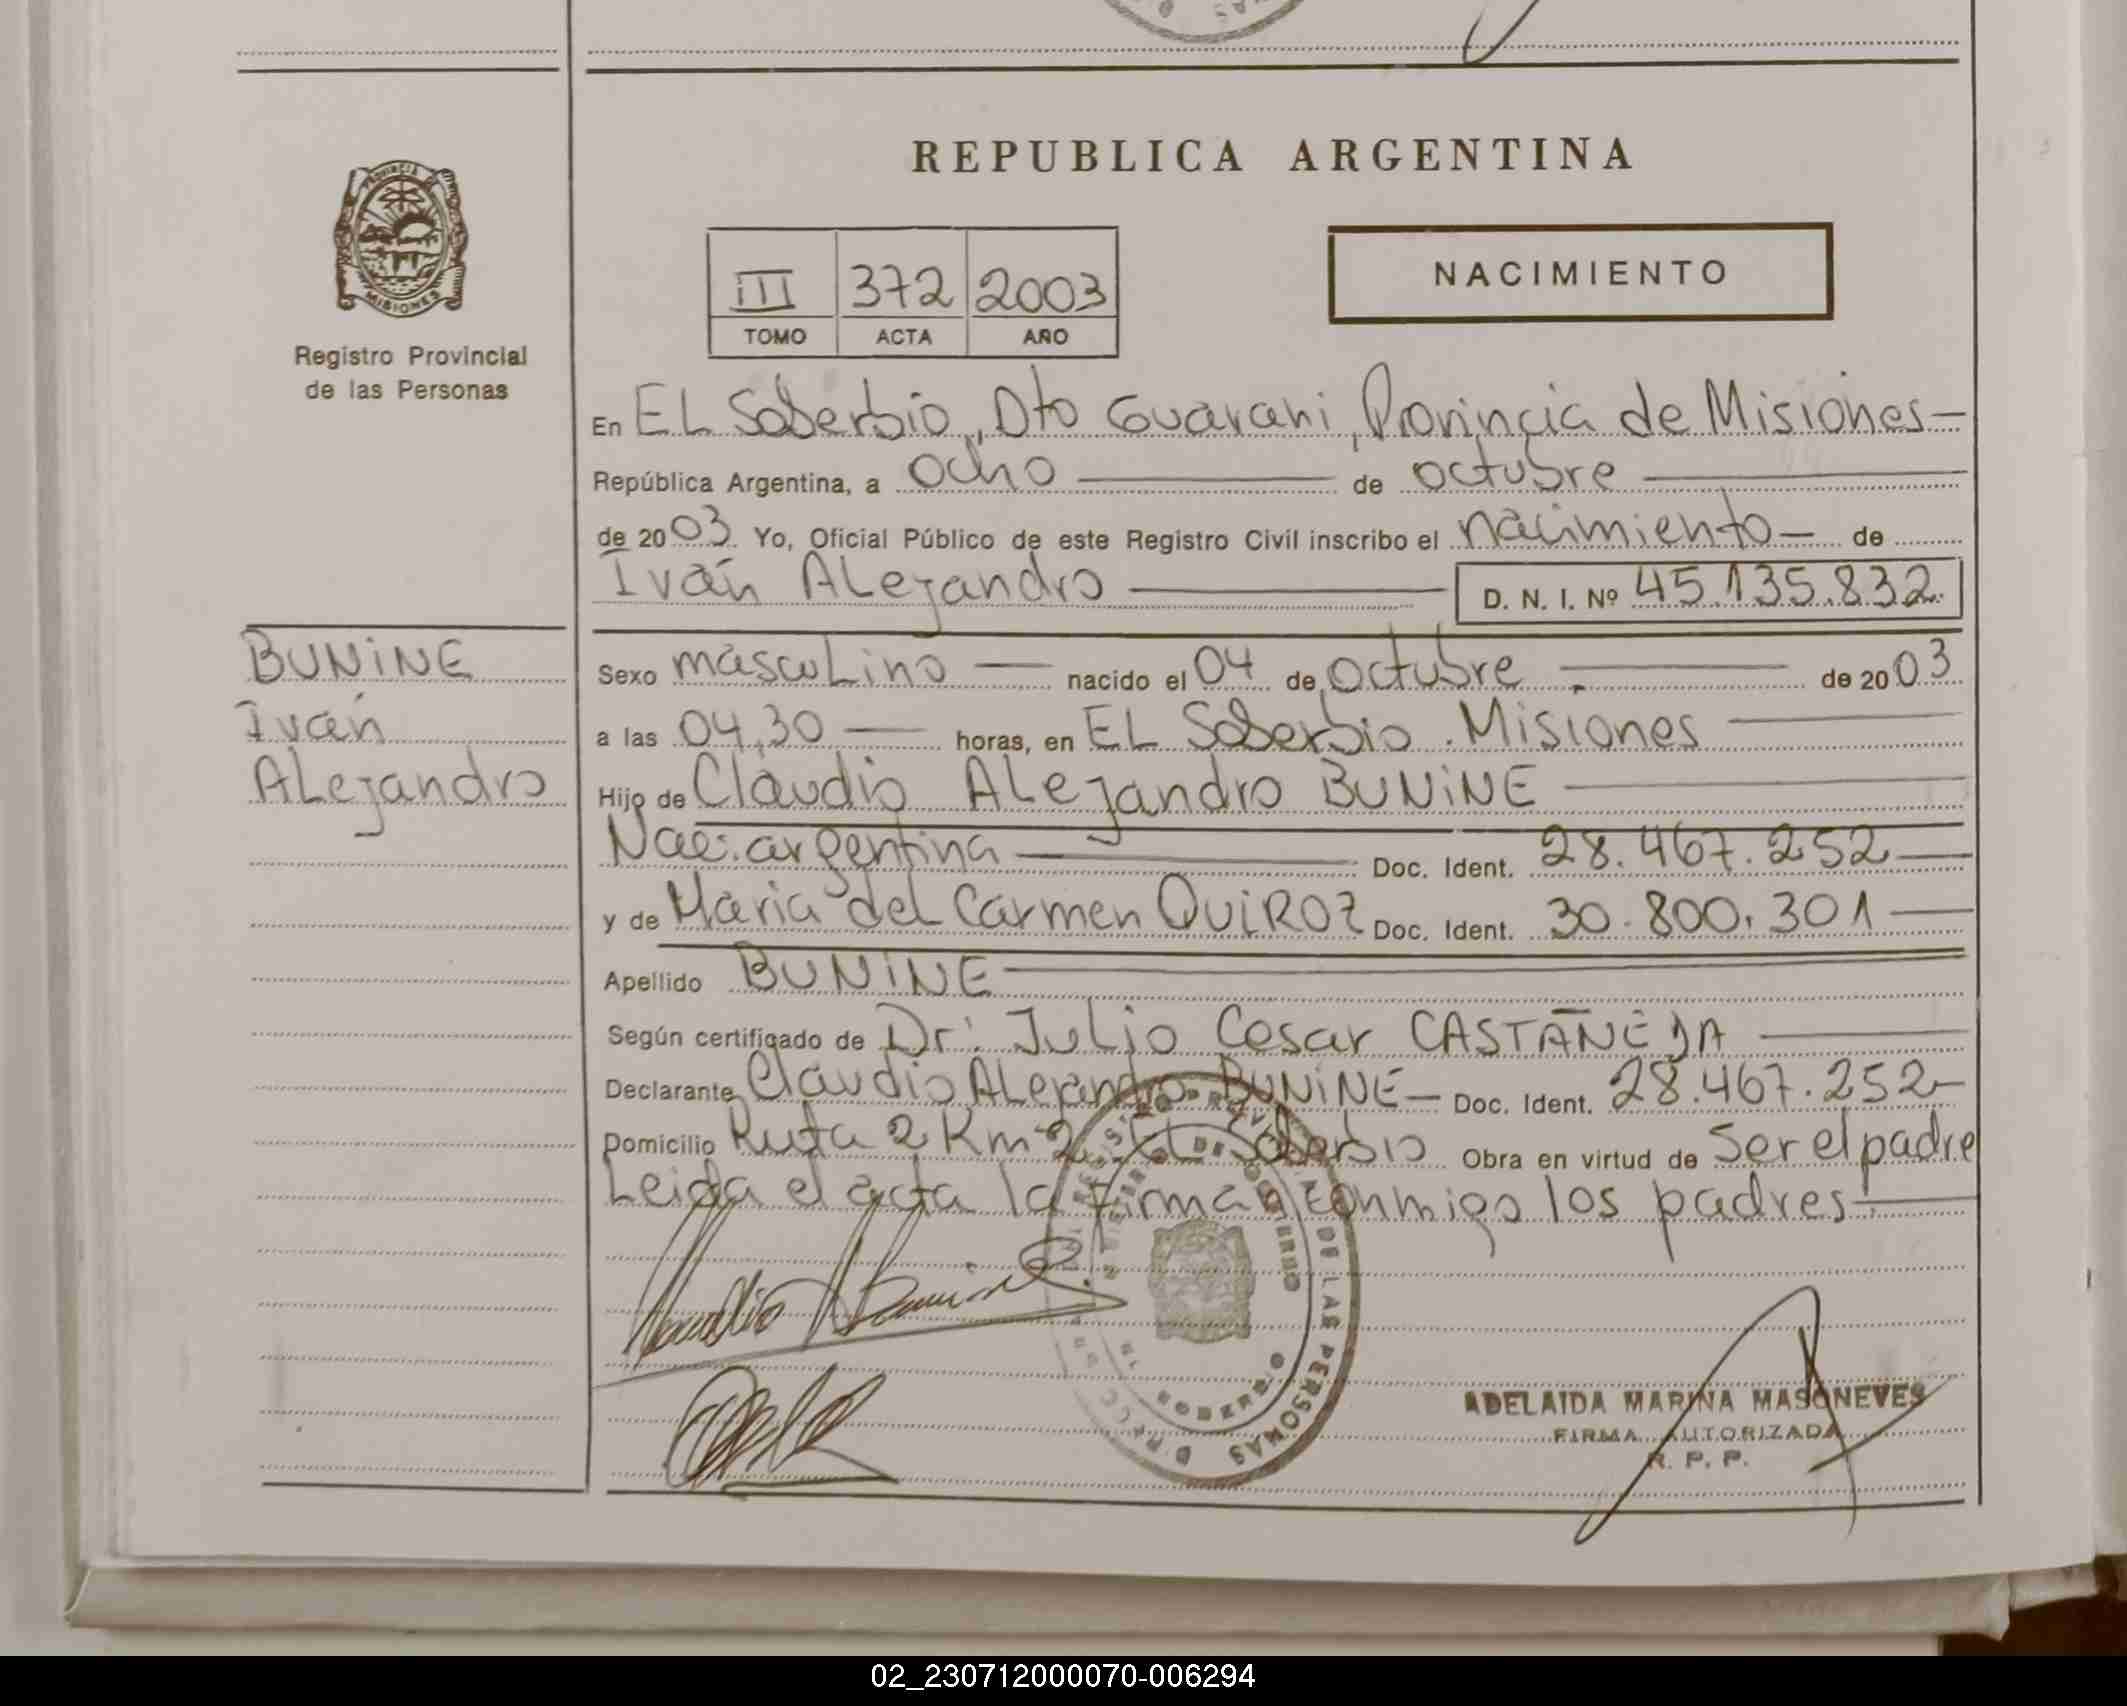 REPUBLICA ARGENTINA
PROVINCIA DE
MISIONES
Registro Provincial
de las Personas
III 372 2003
TOMO ACTA AÑO
NACIMIENTO
En EL Soberbio, Dto Guarani, Provincia de Misiones
República Argentina, a ocho de octubre
de 2003 Yo, Oficial Público de este Registro Civil inscribo el nacimiento de
Iván ALejandro D. N. I. Nº 45.135.832
BUNINE
Iván
ALejandro
Sexo mascuLino nacido el 04 de octubre de 2003
a las 04,30 horas, en EL Soberbio. Misiones
Hijo de Claudio ALejandro BUNINE
Nac. argentina Doc. Ident. 28.467.252
y de Maria del Carmen QUIROZ Doc. Ident. 30.800.301
Apellido BUNINE
Según certificado de Dr. Julio Cesar CASTAÑEDA
Declarante Claudio ALejandro BUNINE Doc. Ident. 28.467.252
Domicilio Ruta 2 Km 2 EL Soberbio Obra en virtud de Ser el padre
Leida el acta la firman conmigo los padres
DE LAS PERSONAS
ADELAIDA MARINA MASONEVES
FIRMA AUTORIZADA
R. P. P.
02_230712000070-006294